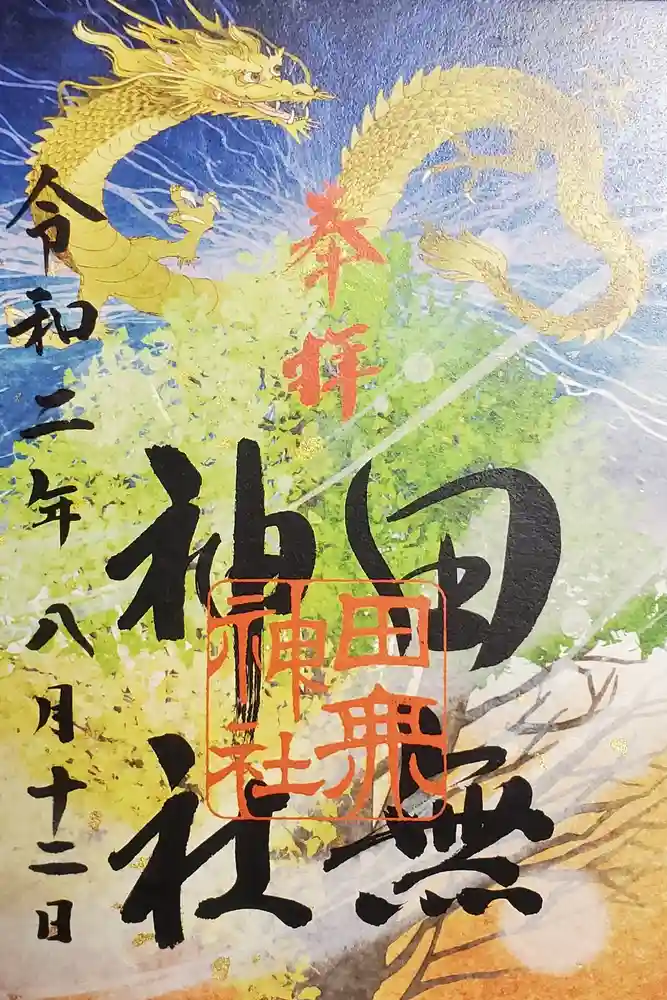 奉拝
田無
神社
田無
神社
令和二年八月十二日